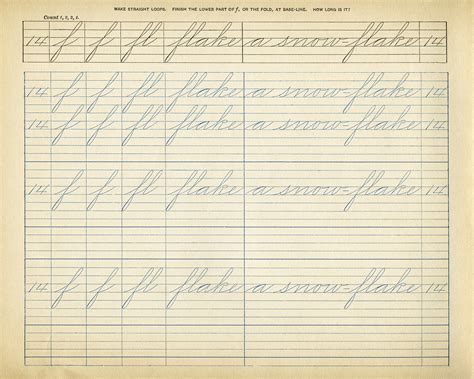 MAKE STRAIGHT LOOPS. FINISH THE LOWER PART OF f, OR THE FOLD, AT BASE-LINE. HOW LONG IS IT?
Count 1, 2, 3, 4.
14 f f fl flake a snow=flake 14
14 f f fl flake a snow=flake 14
14 f f fl flake a snow=flake 14
14 f f fl flake a snow=flake 14
14 f f fl flake a snow=flake 14